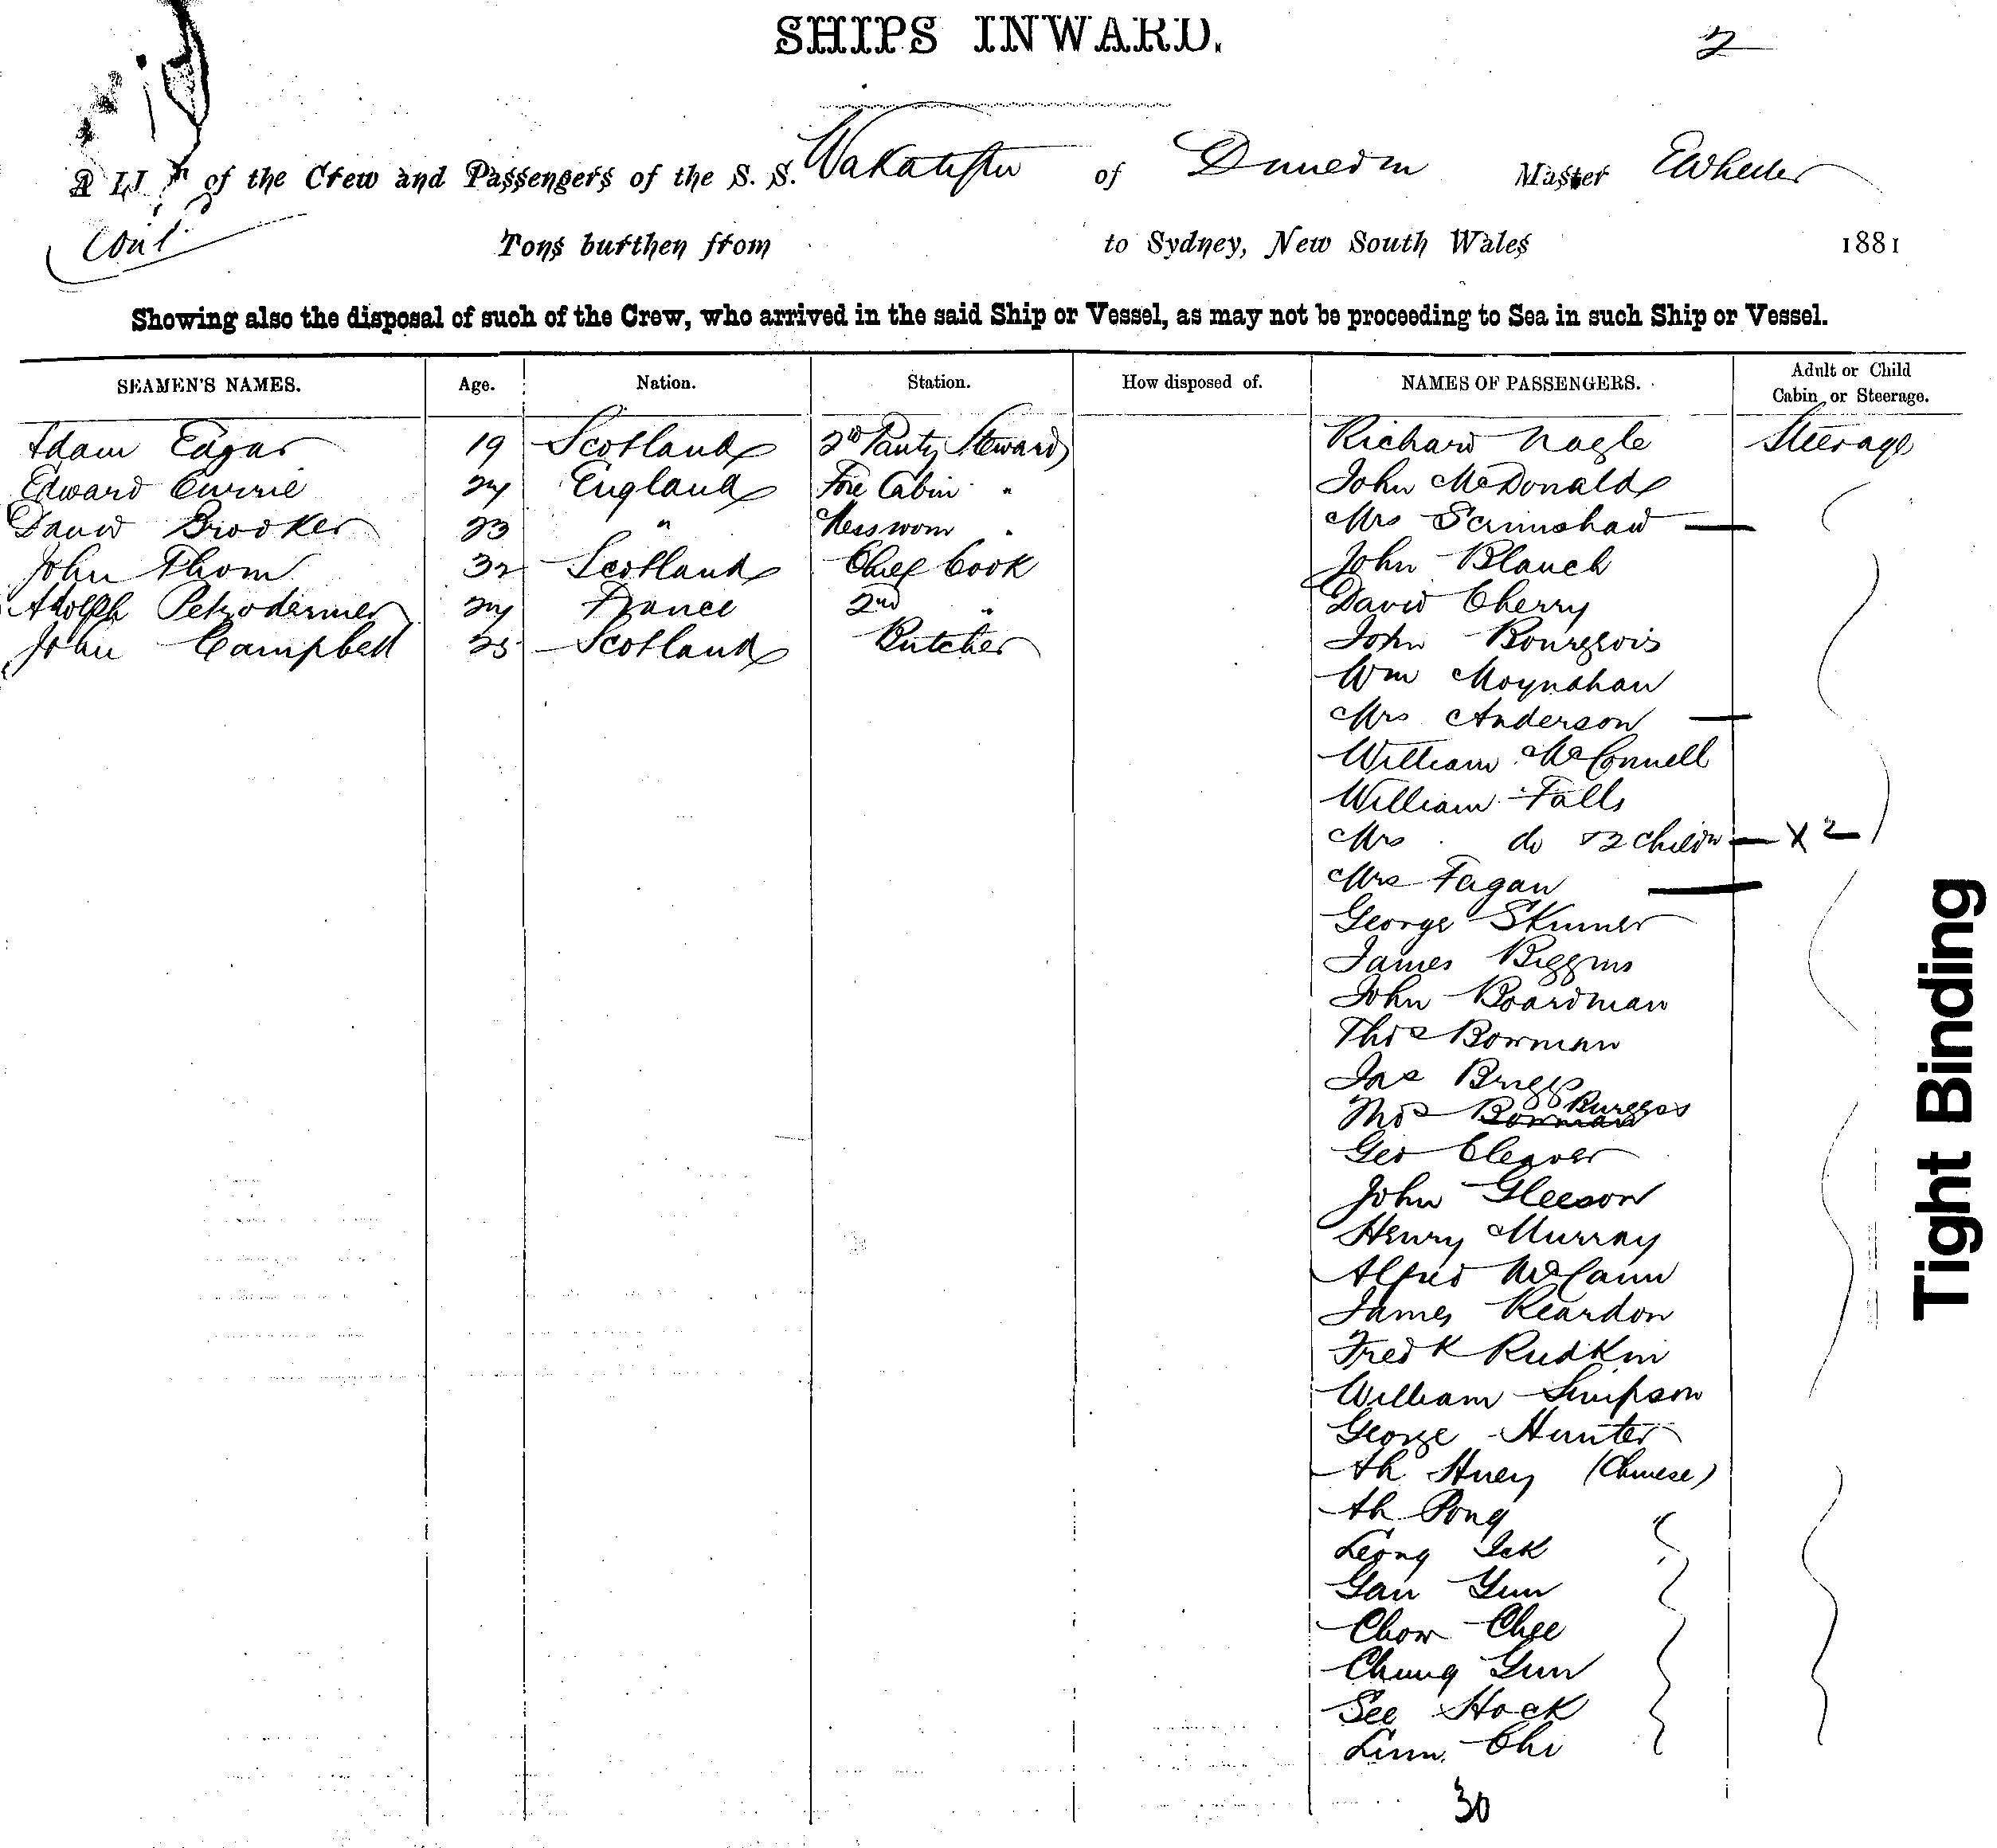 SHIPS INWARD.
2
A LIST of the Crew and Passengers of the S. S. Wakatipu of Dunedin Master E Wheeler
Cont.
Tons burthen from to Sydney, New South Wales 1881
Showing also the disposal of such of the Crew, who arrived in the said Ship or Vessel, as may not be proceeding to Sea in such Ship or Vessel.
SEAMEN'S NAMES. Age. Nation. Station. How disposed of. NAMES OF PASSENGERS. Adult or Child Cabin or Steerage.
Adam Edgar 19 Scotland 2nd Pantry Steward Richard Nagle Steerage
Edward Currie 24 England Fore Cabin " John McDonald
David Brooker 23 " Messroom " Mrs Scrimshaw —
John Thom 32 Scotland Chief Cook John Blanch
Adolph Petrodermer 24 France 2nd " David Cherry
John Campbell 25 Scotland Butcher John Bourgeois
Wm Moynahan
Mrs Anderson —
William McConnell
William Falls
Mrs do & 2 childn — X 2
Mrs Fagan —
George Skinner
James Biggins
John Boardman
Thos Bowman
Jas Briggs
Thos Bowman Burgess
Geo Cleaver
John Gleeson
Henry Murray
Alfred McCann
James Reardon
Fredk Rudkin
William Simpson
George Hunter
Ah Huey (Chinese)
Ah Pong "
Leong Ick
Gan Yun
Chow Chee
Chung Yun
See Hock
Linn Chi
30
Tight Binding